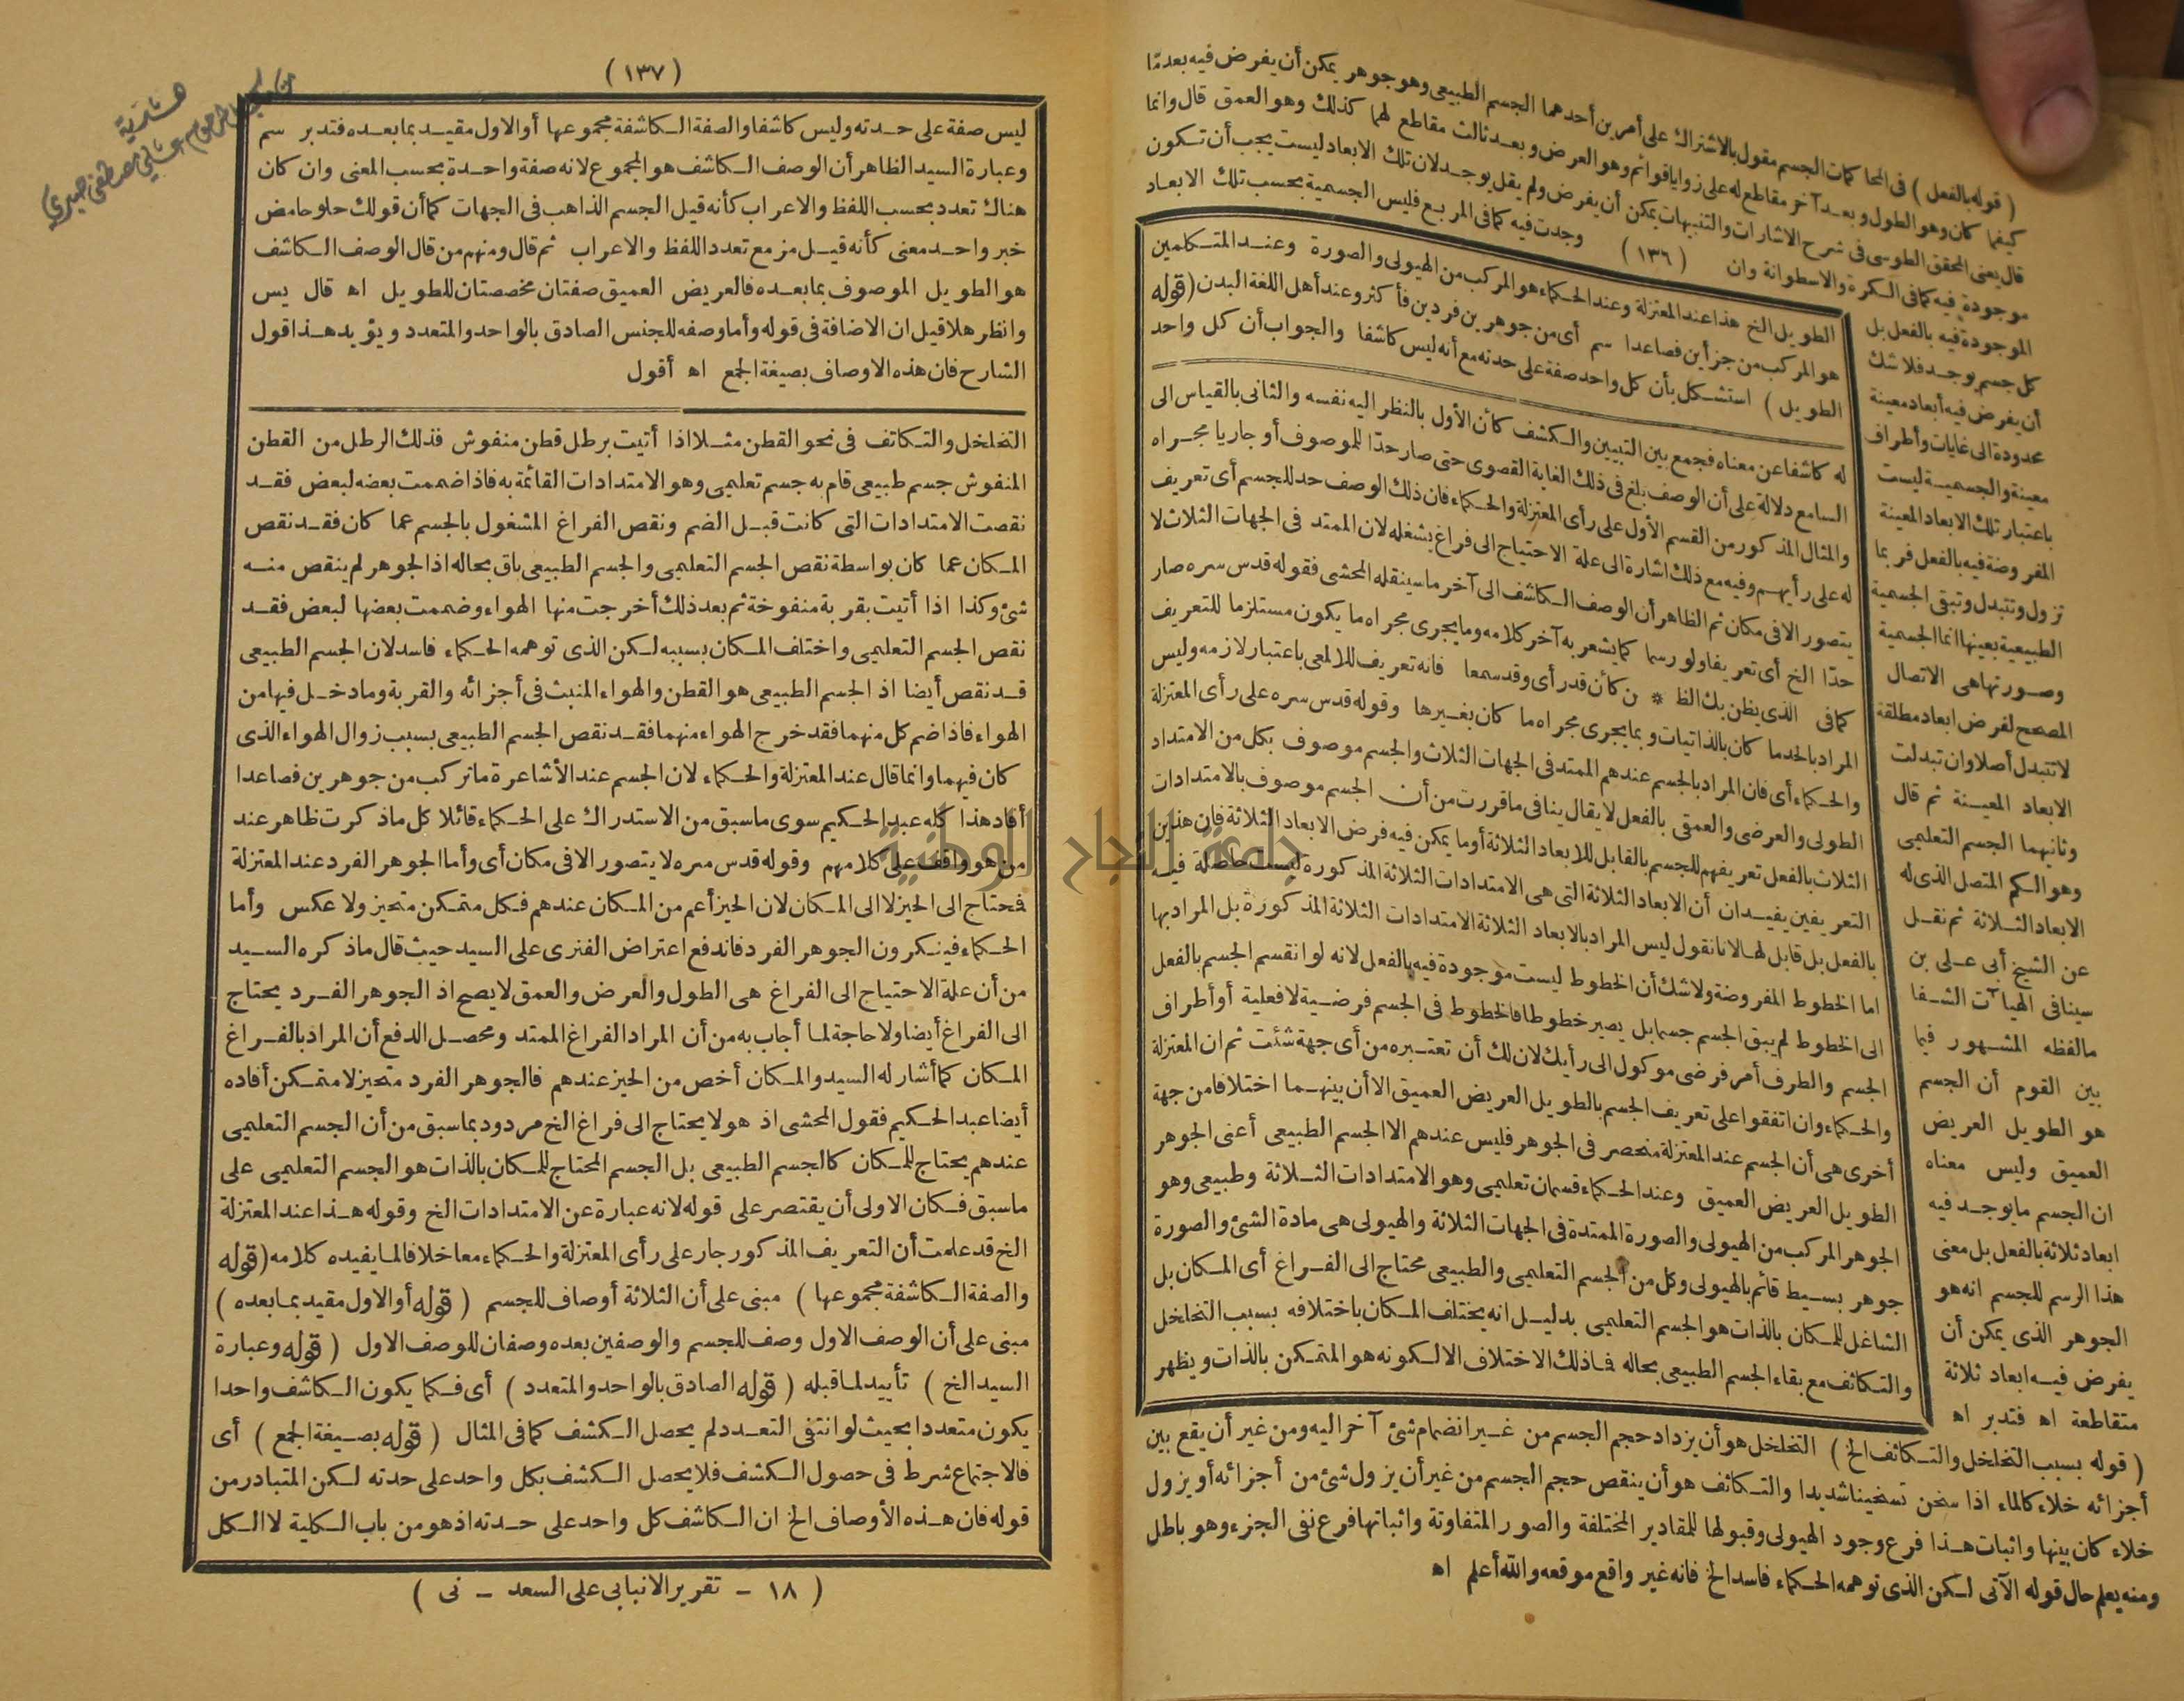 ( قوله بالفعل ) فى المحا كمات الجسم مقول بالاشتراك على أمرين أحدهما الجسم الطبيعى وهو جوهر يمكن أن يفرض فيه بعد مّا
كيفما كان وهو الطول وبعد آخر مقاطع له على زوايا قوائم وهو العرض وبعد ثالث مقاطع لهما كذلك وهو العمق قال وانما
قال يعنى المحقق الطوسى فى شرح الاشارات والتنبيهات يمكن أن يفرض ولم يقل يوجد لان تلك الابعاد ليست يجب أن تكون
موجودة فيه كما فى الكرة والاسطوانة وان ( ١٣٦ ) وجدت فيه كما فى المربع فليس الجسمية بحسب تلك الابعاد
الموجودة فيه بالفعل بل
كل جسم يوجد فلا شك
أن يفرض فيه أبعاد معينة
محدودة الى غايات وأطراف
معينة والجسمية ليست
باعتبار تلك الابعاد المعينة
المفروضة فيه بالفعل فربما
تزول وتتبدل وتبقى الجسمية
الطبيعية بعينها انما الجسمية
وصورتها هى الاتصال
المصحح لفرض ابعاد مطلقة
لا تتبدل أصلا وان تبدلت
الابعاد المعينة ثم قال
وثانيهما الجسم التعليمى
وهو الكم المتصل الذى له
الابعاد الثلاثة ثم نقل
عن الشيخ أبى على بن
سينا فى الهيآت الشفا
مالفظه المشهور فيما
بين القوم أن الجسم
هو الطويل العريض
العميق وليس معناه
ان الجسم ما يوجد فيه
ابعاد ثلاثة بالفعل بل معنى
هذا الرسم للجسم انه هو
الجوهر الذى يمكن أن
يفرض فيه ابعاد ثلاثة
متقاطعة اه فتدبر اه
الطويل الخ هذا عند المعتزلة وعند الحكماء هو المركب من الهيولى والصورة وعند المتكلمين
هو المركب من جزأين فصاعدا سم أى من جوهرين فردين فأكثر وعند أهل اللغة البدن (قوله
الطويل ) استشكل بأن كل واحد صفة على حدته مع أنه ليس كاشفا والجواب أن كل واحد
له كاشفا عن معناه فجمع بين التبيين والكشف كأن الأول بالنظر اليه نفسه والثانى بالقياس الى
السامع دلالة على أن الوصف بلغ فى ذلك الغاية القصوى حتى صار حدّا للموصوف أو جاريا مجراه
والمثال المذكور من القسم الأول على رأى المعتزلة والحكماء فان ذلك الوصف حد للجسم أى تعريف
له على رأيهم وفيه مع ذلك اشارة الى علة الاحتياج الى فراغ يشغله لان الممتد فى الجهات الثلاث لا
يتصور الا فى مكان ثم الظاهر أن الوصف الكاشف الى آخر ما سينقله المحشى فقوله قدس سره صار
حدّا الخ أى تعريفا ولو رسما كما يشعر به آخر كلامه وما يجرى مجراه ما يكون مستلزما للتعريف
كما فى الذى يظن بك الظ * ن كأن قد رأى وقد سمعا فانه تعريف للالمعى باعتبار لازمه وليس
المراد بالحد ما كان بالذاتيات وبما يجرى مجراه ما كان بغيرها وقوله قدس سره على رأى المعتزلة
والحكماء أى فان المراد بالجسم عندهم الممتد فى الجهات الثلاث والجسم موصوف بكل من الامتداد
الطولى والعرضى والعمقى بالفعل لا يقال ينافى ما قررت من أن الجسم موصوف بالامتدادات
الثلاث بالفعل تعريفهم للجسم بالقابل للابعاد الثلاثة أو ما يمكن فيه فرض الابعاد الثلاثة فان هذين
التعريفين يفيدان أن الابعاد الثلاثة التى هى الامتدادات الثلاثة المذكوره ليست حاصلة فيه
بالفعل بل قابل لها لانا نقول ليس المراد بالابعاد الثلاثة الامتدادات الثلاثة المذكورة بل المراد بها
اما الخطوط المفروضة ولا شك أن الخطوط ليست موجودة فيه بالفعل لانه لو انقسم الجسم بالفعل
الى الخطوط لم يبق الجسم جسما بل يصير خطوطا فالخطوط فى الجسم فرضية لا فعلية أو أطراف
الجسم والطرف أمر فرضى موكول الى رأيك لان لك أن تعتبره من أى جهة شئت ثم ان المعتزلة
والحكماء وان اتفقوا على تعريف الجسم بالطويل العريض العميق الا أن بينهما اختلافا من جهة
أخرى هى أن الجسم عند المعتزلة منحصر فى الجوهر فليس عندهم الا الجسم الطبيعى أعنى الجوهر
الطويل العريض العميق وعند الحكماء قسمان تعليمى وهو الامتدادات الثلاثة وطبيعى وهو
الجوهر المركب من الهيولى والصورة الممتدة فى الجهات الثلاثة والهيولى هى مادة الشئ والصورة
جوهر بسيط قائم بالهيولى وكل من الجسم التعليمى والطبيعى محتاج الى الفراغ أى المكان بل
الشاغل للمكان بالذات هو الجسم التعليمى بدليل انه يختلف المكان باختلافه بسبب التخلخل
والتكاثف مع بقاء الجسم الطبيعى بحاله فما ذلك الاختلاف الا لكونه هو المتمكن بالذات ويظهر
( قوله بسبب التخلخل والتكاثف الخ ) التخلخل هو أن يزداد حجم الجسم من غير انضمام شئ آخر اليه ومن غير أن يقع بين
أجزائه خلاء كالماء اذا سخن تسخينا شديدا والتكاثف هو أن ينقص حجم الجسم من غير أن يزول شئ من أجزائه أو يزول
خلاء كان بينها واثبات هذا فرع وجود الهيولى وقبولها للمقادير المختلفة والصور المتفاوتة واثباتها فرع نفى الجزء وهو باطل
ومنه يعلم حال قوله الآتى لكن الذى توهمه الحكماء فاسد الخ فانه غير واقع موقعه والله أعلم اه
( ١٣٧ )
ليس صفة على حدته وليس كاشفا والصفة الكاشفة مجموعها أو الاول مقيد بما بعده فتدبر سم
وعبارة السيد الظاهر أن الوصف الكاشف هو المجموع لانه صفة واحدة بحسب المعنى وان كان
هناك تعدد بحسب اللفظ والاعراب كأنه قيل الجسم الذاهب فى الجهات كما أن قولك حلو حامض
خبر واحد معنى كأنه قيل مز مع تعدد اللفظ والاعراب ثم قال ومنهم من قال الوصف الكاشف
هو الطويل الموصوف بما بعده فالعريض العميق صفتان مخصصتان للطويل اه قال يس
وانظر هلا قيل ان الاضافة فى قوله وأما وصفه للجنس الصادق بالواحد والمتعدد ويؤيد هذا قول
الشارح فان هذه الاوصاف بصيغة الجمع اه أقول
التخلخل والتكاثف فى نحو القطن مثلا اذا أتيت برطل قطن منفوش فذلك الرطل من القطن
المنفوش جسم طبيعى قام به جسم تعليمى وهو الامتدادات القائمة به فاذا ضممت بعضه لبعض فقد
نقصت الامتدادات التى كانت قبل الضم ونقص الفراغ المشغول بالجسم عما كان فقد نقص
المكان عما كان بواسطة نقص الجسم التعليمى والجسم الطبيعى باق بحاله اذ الجوهر لم ينقص منه
شئ وكذا اذا أتيت بقربة منفوخة ثم بعد ذلك أخرجت منها الهواء وضممت بعضها لبعض فقد
نقص الجسم التعليمى واختلف المكان بسببه لكن الذى توهمه الحكماء فاسد لان الجسم الطبيعى
قد نقص أيضا اذ الجسم الطبيعى هو القطن والهواء المنبث فى أجزائه والقربة وما دخل فيها من
الهواء فاذا ضم كل منهما فقد خرج الهواء منهما فقد نقص الجسم الطبيعى بسبب زوال الهواء الذى
كان فيهما وانما قال عند المعتزلة والحكماء لان الجسم عند الأشاعرة ما تركب من جوهرين فصاعدا
أفاد هذا كله عبد الحكيم سوى ما سبق من الاستدراك على الحكماء قائلا كل ما ذكرت ظاهر عند
من هو واقف على كلامهم وقوله قدس سره لا يتصور الا فى مكان أى وأما الجوهر الفرد عند المعتزلة
فمحتاج الى الحيز لا الى المكان لان الحيز أعم من المكان عندهم فكل متمكن متحيز ولا عكس وأما
الحكماء فينكرون الجوهر الفرد فاندفع اعتراض الفنرى على السيد حيث قال ما ذكره السيد
من أن علة الاحتياج الى الفراغ هى الطول والعرض والعمق لا يصح اذ الجوهر الفرد يحتاج
الى الفراغ أيضا ولا حاجة لما أجاب به من أن المراد الفراغ الممتد ومحصل الدفع أن المراد بالفراغ
المكان كما أشار له السيد والمكان أخص من الحيز عندهم فالجوهر الفرد متحيز لا متمكن أفاده
أيضا عبد الحكيم فقول المحشى اذ هو لا يحتاج الى فراغ الخ مردود بما سبق من أن الجسم التعليمى
عندهم يحتاج للمكان كالجسم الطبيعى بل الجسم المحتاج للمكان بالذات هو الجسم التعليمى على
ما سبق فكان الاولى أن يقتصر على قوله لانه عبارة عن الامتدادات الخ وقوله هذا عند المعتزلة
الخ قد علمت أن التعريف المذكور جار على رأى المعتزلة والحكماء معا خلافا لما يفيده كلامه (قوله
والصفة الكاشفة مجموعها ) مبنى على أن الثلاثة أوصاف للجسم ( قوله أو الاول مقيد بما بعده )
مبنى على أن الوصف الاول وصف للجسم والوصفين بعده وصفان للوصف الاول ( قوله وعبارة
السيد الخ ) تأييد لما قبله ( قوله الصادق بالواحد والمتعدد ) أى فكما يكون الكاشف واحدا
يكون متعددا بحيث لو انتفى التعدد لم يحصل الكشف كما فى المثال ( قوله بصيغة الجمع ) أى
فالاجتماع شرط فى حصول الكشف فلا يحصل الكشف بكل واحد على حدته لكن المتبادر من
قوله فان هذه الأوصاف الخ ان الكاشف كل واحد على حدته اذ هو من باب الكلية لا الكل
( ١٨ - تقرير الانبابى على السعد - نى )
جامعة النجاح الوطنية